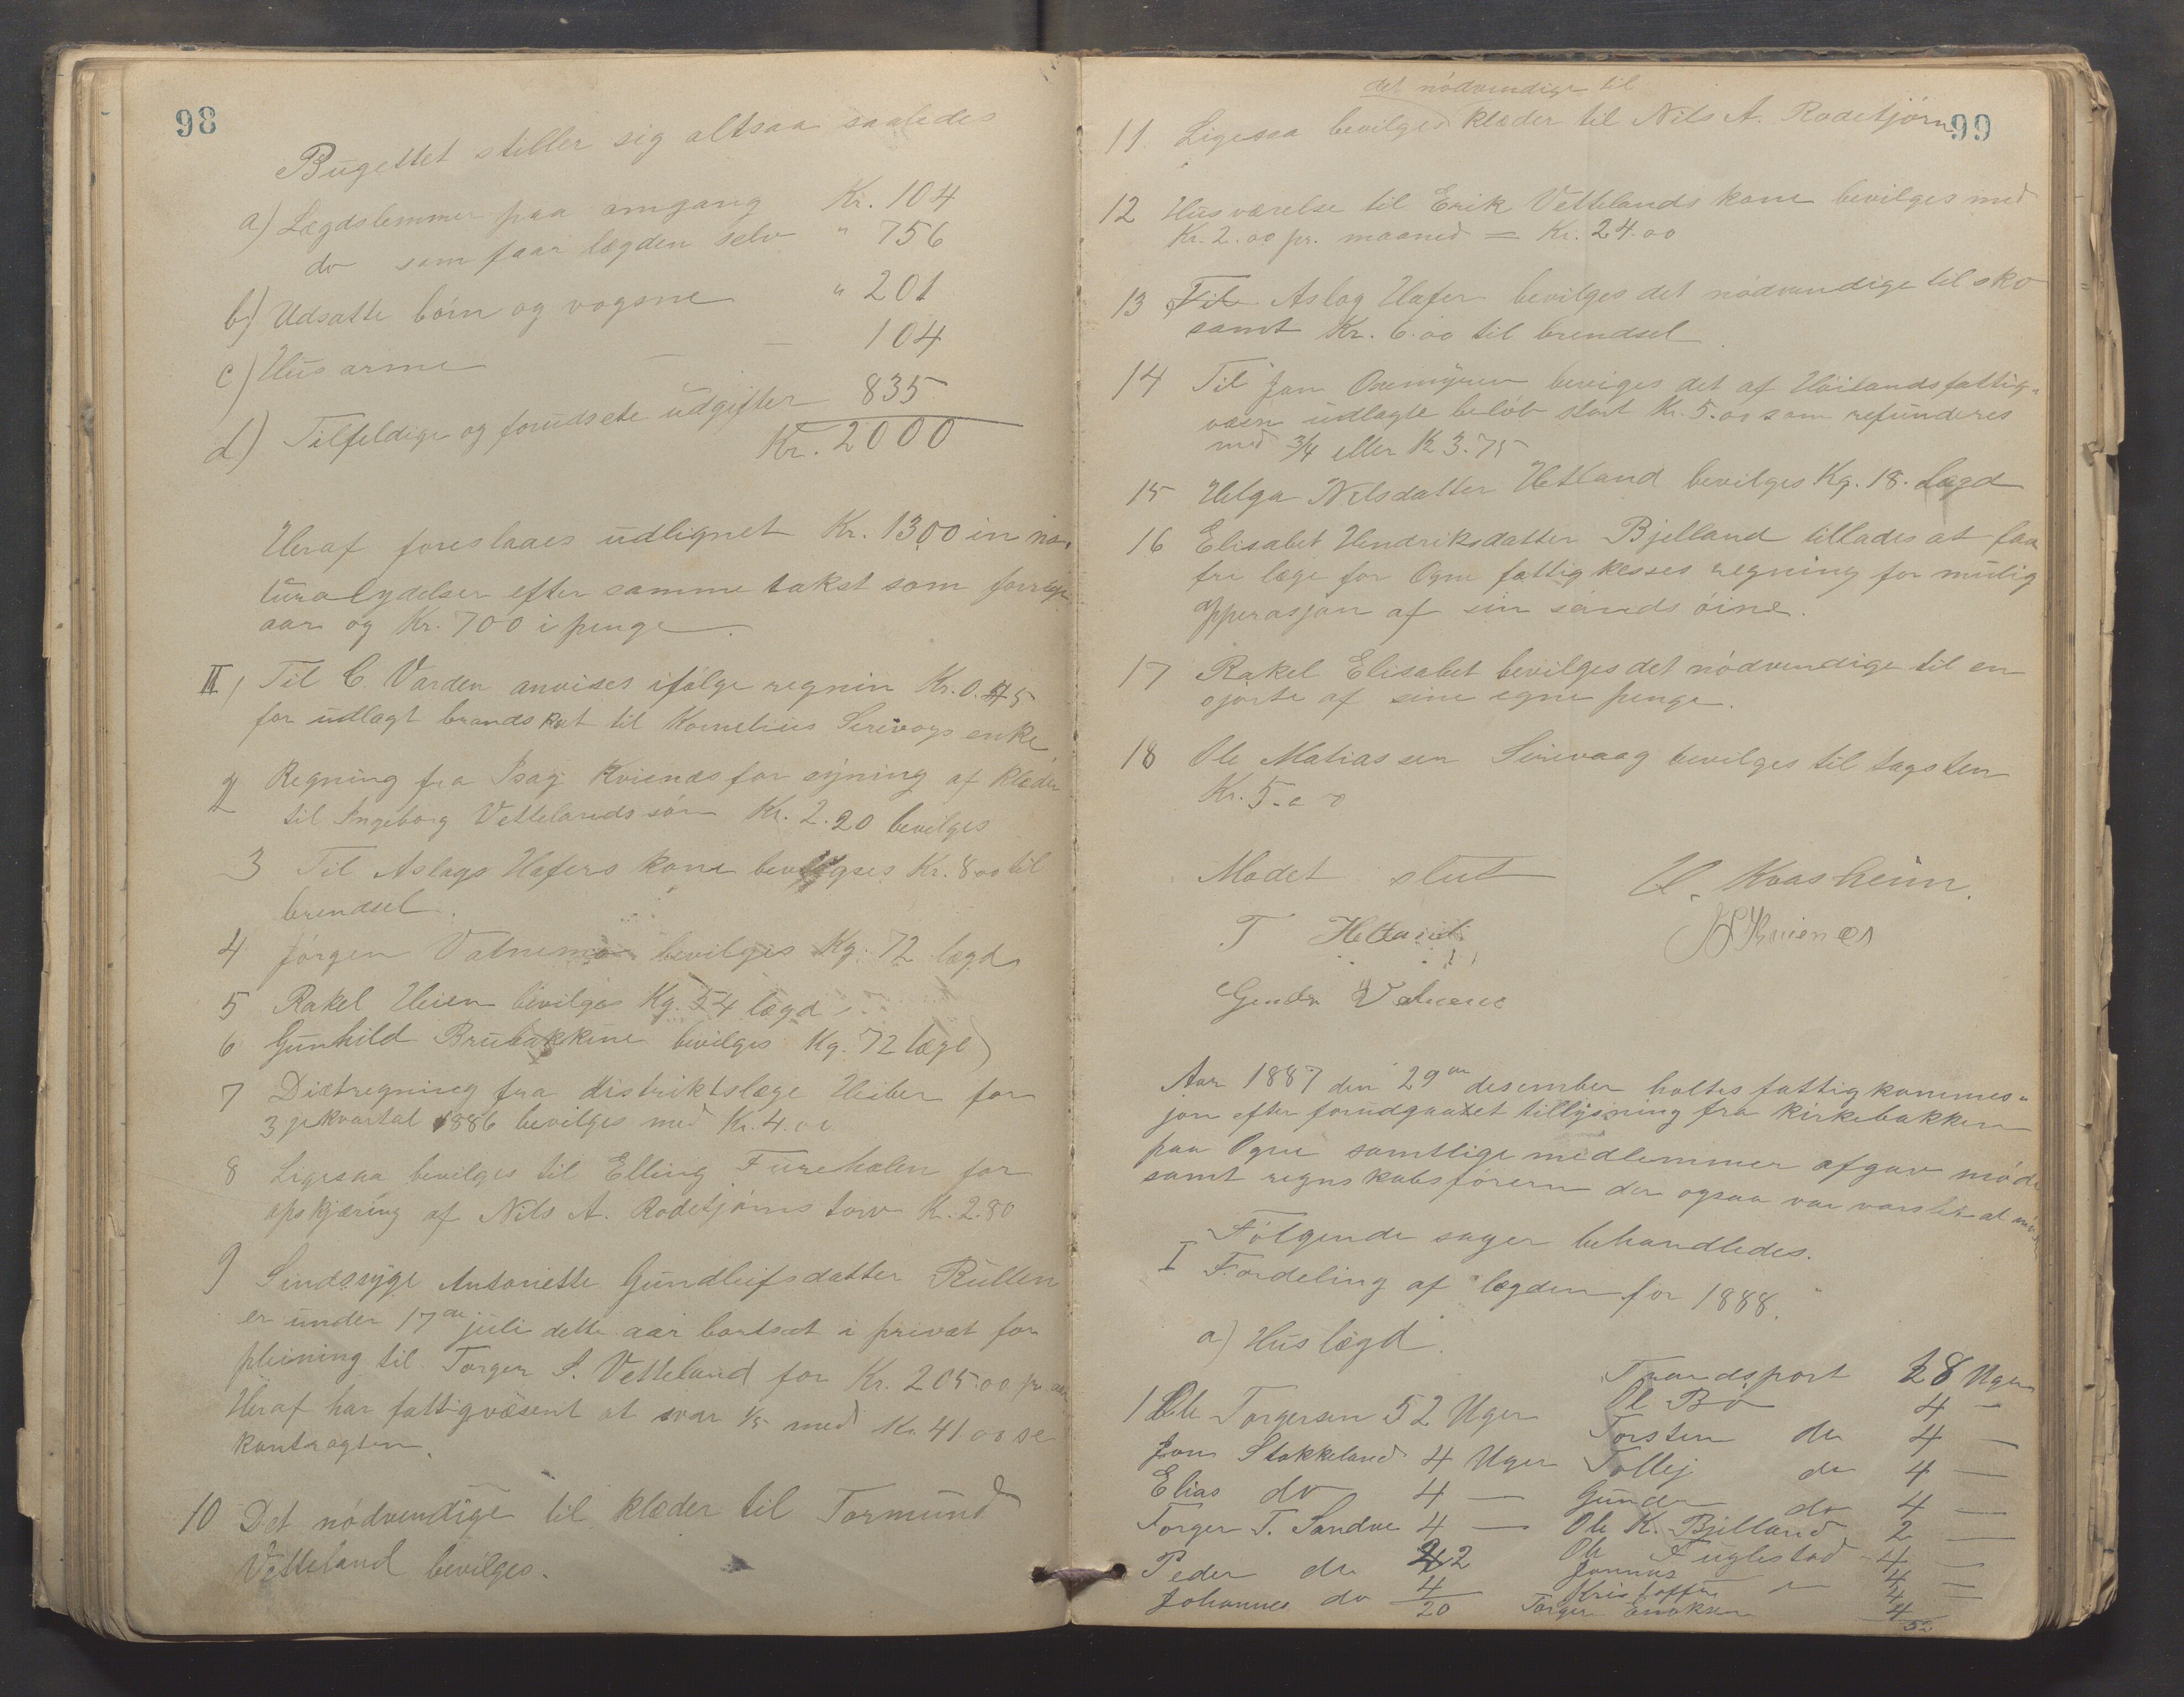 98
Bugettet stiller sig altsaa saaledes
a) Lægdslemmer paa omgang Kr. 104
do som faar lægden selv " 756
b) Udsatte börn og vogsne " 201
c) Husarme — — 104
d) Tilfeldige og forudsete udgifter 835
Kr. 2000
Heraf foreslaaes udlignet Kr. 1300 in na-
turalydelser efter samme takst som forrige
aar og Kr. 700 i penge.
II 1 Til C. Varden anvises ifölge regnin Kr. 0.45
for udlagt brandskat til Kornelius Sirevogs enke
2 Regning fra Isag Kvienæs for syning af klæder
til Ingeborg Vettelands sön Kr. 2.20 bevilges
3 Til Aslags Hafers kone bevilgses Kr. 8.00 til
brendsel.
4 Jörgen Vatnemo bevilges Kg. 72 lægd
5 Rakel Heien bevilges Kg. 54 lægd
6 Gunhild Brubakkene bevilges Kg. 72 lægd
7 Diætregning fra distriktslæge Heiber for
3 je kvartal 1886 bevilges med Kr. 4.00
8 Ligesaa bevilges til Elling Fureholen for
opskjæring af Nils A. Rodetjörns torv Kr. 2.80
9 Sindssyge Antoniette Gundleifsdatter Rullen
er under 17de juli dette aar bortsat i privat for
pleining til Torger S. Vetteland for Kr. 205.00 pr. aar
Heraf har fattigvæsent at svar 1/5 med Kr. 41 00 se
kontragten.
10 Det nödvendige til klæder til Tormund
Vetteland bevilges.
99
det nödvendige til
11 Ligesaa bevilges klæder til Nils A. Rodetjörn
12 Husværelse til Erik Vettelands kone bevilges med
Kr. 2.00 pr. maaned = Kr. 24.00
13 Til Aslag Hafer bevilges det nödvendige til sko
samt Kr. 6.00 til brendsel.
14 Til Jan Osemyren beviges det af Höilands fattig-
væsen udlagte belöb stort Kr. 5.00 som refunderes
med 3/4 eller Kr 3.75
15 Helga Nilsdatter Hetland bevilges Kg. 18. Lægd
16 Elisabet Hendriksdatter Bjelland tillades at faa
fri læge for Ogne fattigkesses regning for mulig
opperasjon af sin sönds öine.
17 Rakel Elisabet bevilges det nödvendige til en
sjorte af sine egne penge.
18 Ole Matiassen Sirevaag bevilges til tagsten
Kr. 5.00
Mödet slut H. Kvasheim.
T Hetland Kvienes
Gunder Vatnemo
Aar 1887 den 29de desember holtes fattigkommes-
jon efter forudgaatet tillysning fra kirkebakken
paa Ogne samtlige medlemmer afgav möde
samt regnskabsförern der ogsaa var varslet at möde
Fölgende sager behandledes.
I Fordeling af lægden for 1888.
a) Huslægd.
Trandsport 28 Uger
1 Ole Torgersen 52 Uger Ol Bö 4 —
Jon Stokkeland 4 Uger Torsten do 4 —
Elias do 4 — Tollej do 4 —
Torger T. Sandve 4 — Gunder do 4 —
Peder do 2 Ole K. Bjelland 2 —
Johannes do 4 Ole Fuglestad 4 —
20 Jonnas 4 —
Kristoffer 4 —
Torger Enoksen 4
52